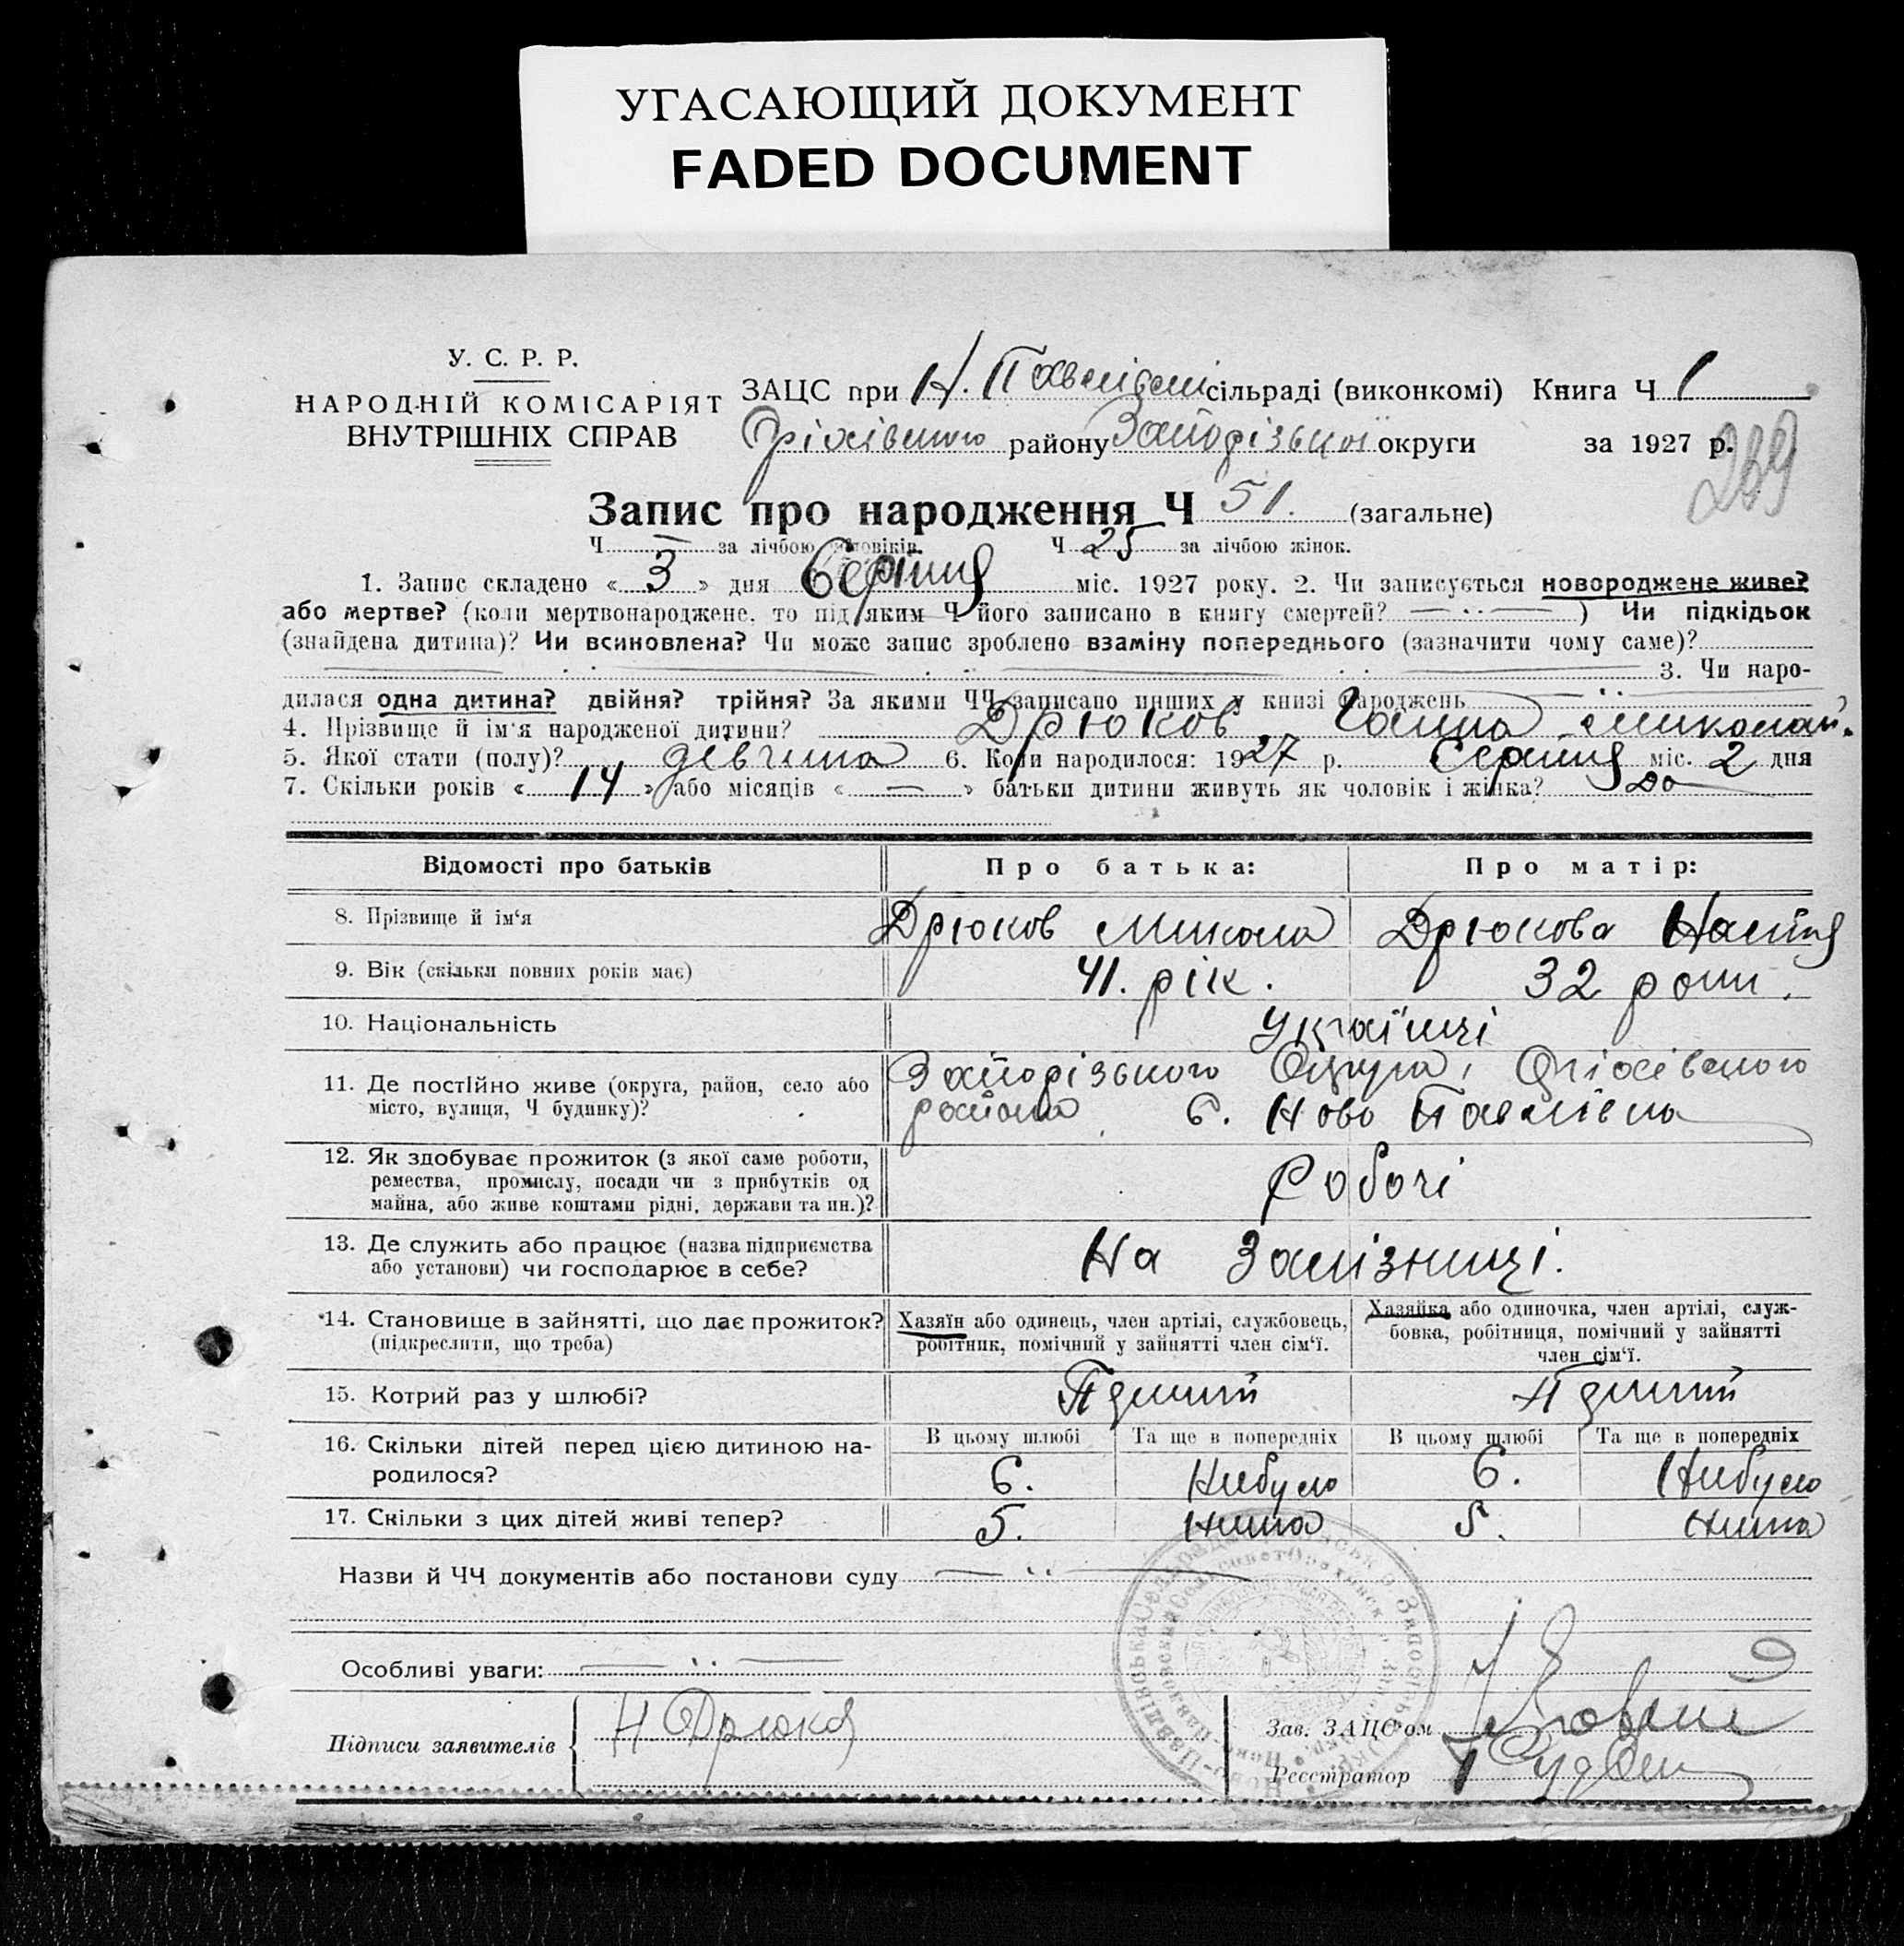 УГАСАЮЩИЙ ДОКУМЕНТ
FADED DOCUMENT
У. С. Р. Р.
НАРОДНІЙ КОМІСАРІЯТ
ВНУТРІШНІХ СПРАВ
ЗАЦС при Н. Павлівській сільраді (виконкомі) Книга Ч 1
Оріхівського району Запорізької округи за 1927 р.
289
Запис про народження Ч 51. (загальне)
Ч — за лічбою чоловіків. Ч 25 за лічбою жінок.
1. Запис складено « 3 » дня Серпня міс. 1927 року. 2. Чи записується новороджене живе?
або мертве? (коли мертвонароджене, то під яким Ч його записано в книгу смертей? ) Чи підкідьок
(знайдена дитина)? Чи всиновлена? Чи може запис зроблено взаміну попереднього (зазначити чому саме)?
3. Чи наро-
дилася одна дитина? двійня? трійня? За якими ЧЧ записано инших у книзі народжень
4. Прізвище й ім'я народженої дитини? Дрюков Ганна Миколай.
5. Якої стати (полу)? дівчина 6. Коли народилося: 1927 р. Серпня міс. 2 дня
7. Скільки років « 14 » або місяців « — » батьки дитини живуть як чоловік і жінка? До
Відомості про батьків Про батька: Про матір:
8. Прізвище й ім'я Дрюков Микола Дрюкова Настя
9. Вік (скільки повних років має) 41. рік. 32 роки.
10. Національність Українці
11. Де постійно живе (округа, район, село або Запорізького Округа, Оріхівського
місто, вулиця, Ч будинку)? района С. Ново Павлівка
12. Як здобуває прожиток (з якої саме роботи,
ремества, промислу, посади чи з прибутків од
майна, або живе коштами рідні, держави та ин.)? Робочі
13. Де служить або працює (назва підприємства
або установи) чи господарює в себе? На Залізниці.
14. Становище в зайнятті, що дає прожиток? Хазяїн або одинець, член артілі, службовець, Хазяйка або одиночка, член артілі, служ-
(підкреслити, що треба) робітник, помічний у зайнятті член сім'ї. бовка, робітниця, помічний у зайнятті
член сім'ї.
15. Котрий раз у шлюбі?
16. Скільки дітей перед цією дитиною на- В цьому шлюбі Та ще в попередніх В цьому шлюбі Та ще в попередніх
родилося? 6. Нибуло 6. Нибуло
17. Скільки з цих дітей живі тепер? 5. Нима 5. Нима
Назви й ЧЧ документів або постанови суду
Особливі уваги:
Підписи заявителів Н Дрюков
Зав. ЗАЦС'ом
Реєстратор